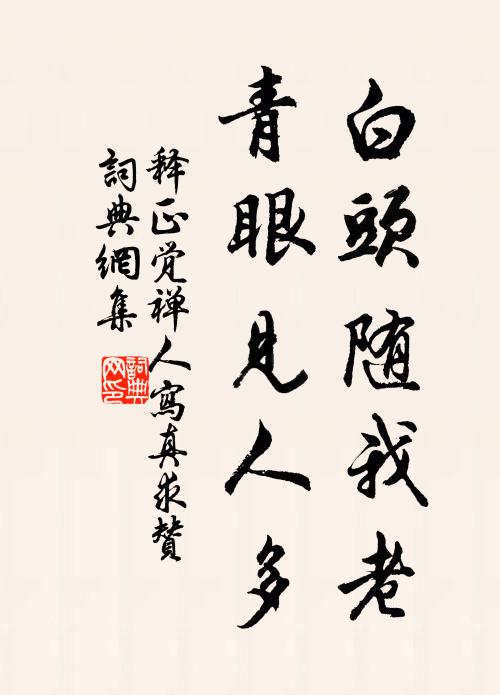 白頭随我老
青眼見人多
释正覚禅人寫真求贊
詞典網集
詞典网印